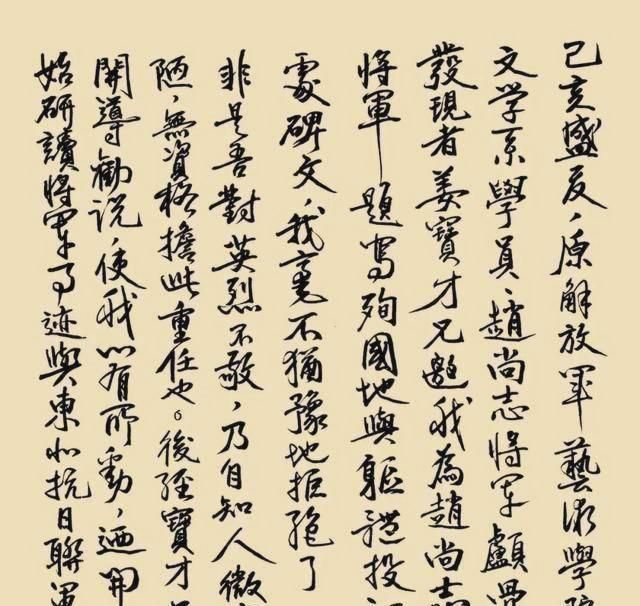 己亥盛夏，原解放軍藝術學院
文学系學員、趙尚志將軍顱骨
發現者姜寶才兄邀我為趙尚志
將軍題寫殉國地與軀體投
處碑文，我毫不猶豫地拒絶了
非是吾對英烈不敬，乃自知人微
陋，無資格擔此重任也。後經寶才
開導勸说，使我心有所動，迺開
始研讀將軍事迹與東北抗日聯軍